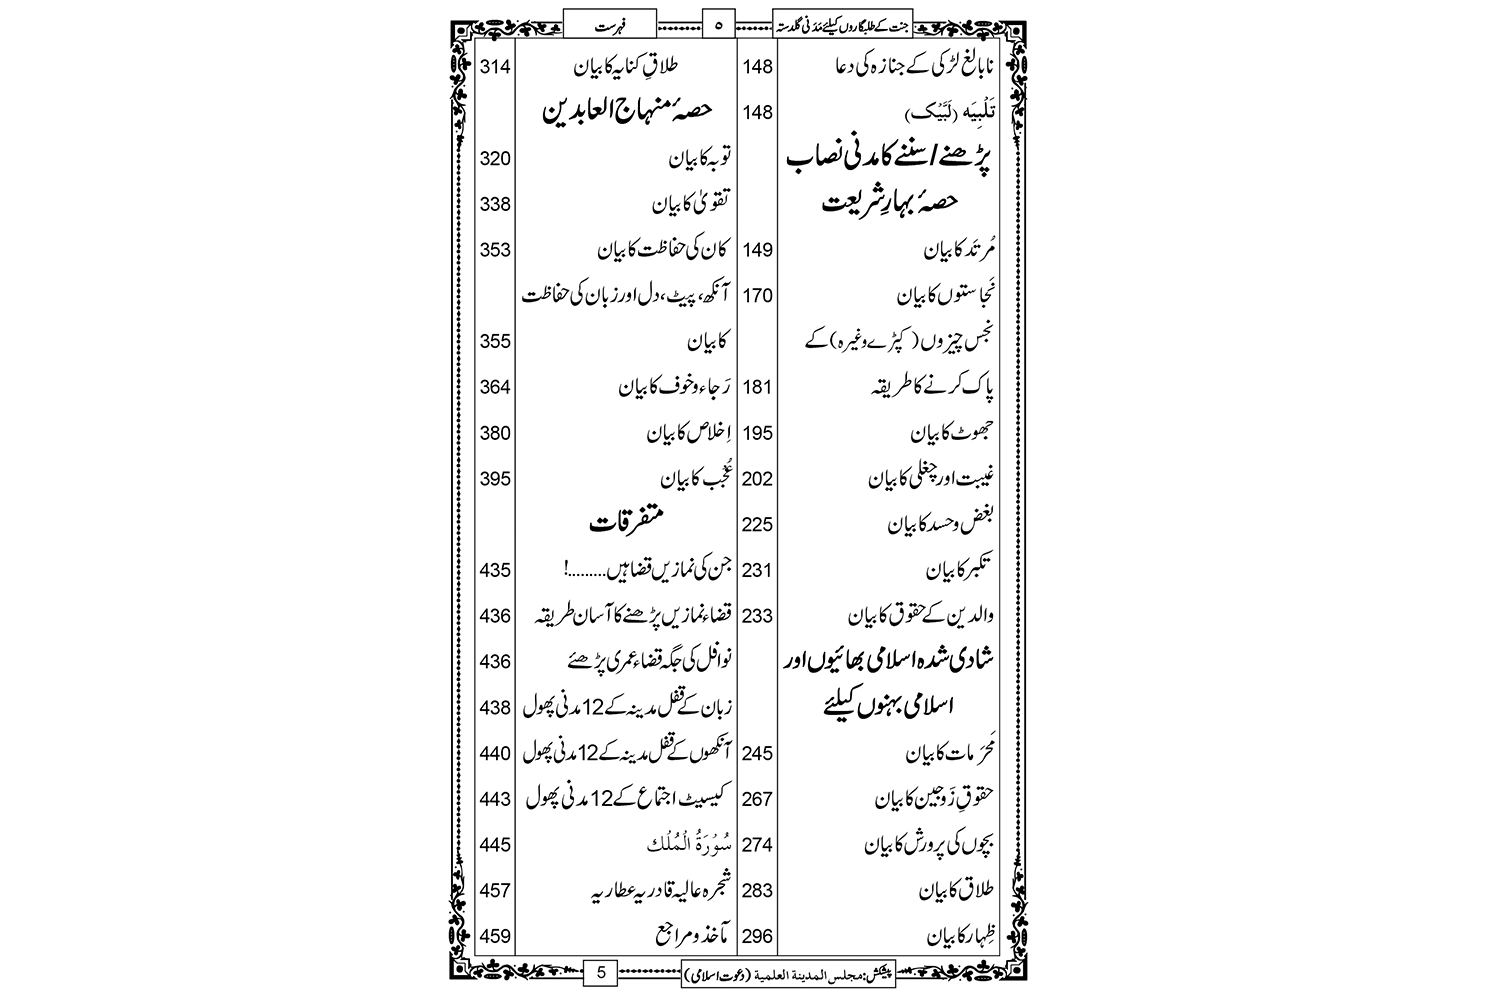 جنت کے طلبگاروں کیلئے مَدَنی گلدستہ
۵
فہرست
نابالغ لڑکی کے جنازہ کی دعا 148
تَلْبِیَہ (لَبَّیْک) 148
پڑھنے/سننے کا مدنی نصاب
حصۂ بہارِ شریعت
مُرتَد کا بیان 149
نَجاستوں کا بیان 170
نجس چیزوں (کپڑے وغیرہ) کے
پاک کرنے کا طریقہ 181
جھوٹ کا بیان 195
غیبت اور چغلی کا بیان 202
بغض و حسد کا بیان 225
تکبر کا بیان 231
والدین کے حقوق کا بیان 233
شادی شدہ اسلامی بھائیوں اور
اسلامی بہنوں کیلئے
مَحرَمات کا بیان 245
حقوقِ زَوجین کا بیان 267
بچوں کی پرورش کا بیان 274
طلاق کا بیان 283
ظِہار کا بیان 296
طلاقِ کنایہ کا بیان 314
حصۂ منہاج العابدین
توبہ کا بیان 320
تقویٰ کا بیان 338
کان کی حفاظت کا بیان 353
آنکھ، پیٹ، دل اور زبان کی حفاظت
کا بیان 355
رَجاء و خوف کا بیان 364
اِخلاص کا بیان 380
عُجْب کا بیان 395
متفرقات
جن کی نمازیں قضا ہیں.........! 435
قضاء نمازیں پڑھنے کا آسان طریقہ 436
نوافل کی جگہ قضاء عمری پڑھئے 436
زبان کے قفل مدینہ کے 12 مدنی پھول 438
آنکھوں کے قفل مدینہ کے 12 مدنی پھول 440
کیسیٹ اجتماع کے 12 مدنی پھول 443
سُوْرَۃُ الْمُلْك 445
شجرہ عالیہ قادریہ عطاریہ 457
مآخذ و مراجع 459
پیشکش: مجلس المدینة العلمیة (دعوت اسلامی)
5